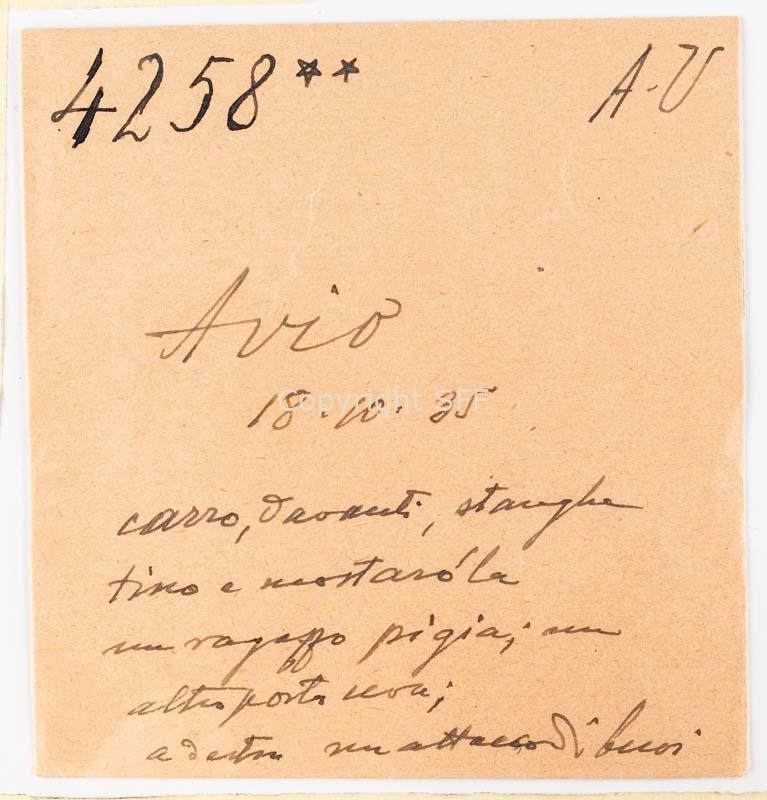 4258** A.V
Avio
Copyright SFF
15.10.35
carro, davanti, stanghe
tino e mostaróla
un ragazzo pigia; un
altro porta uva;
a destra un attacco di buoi